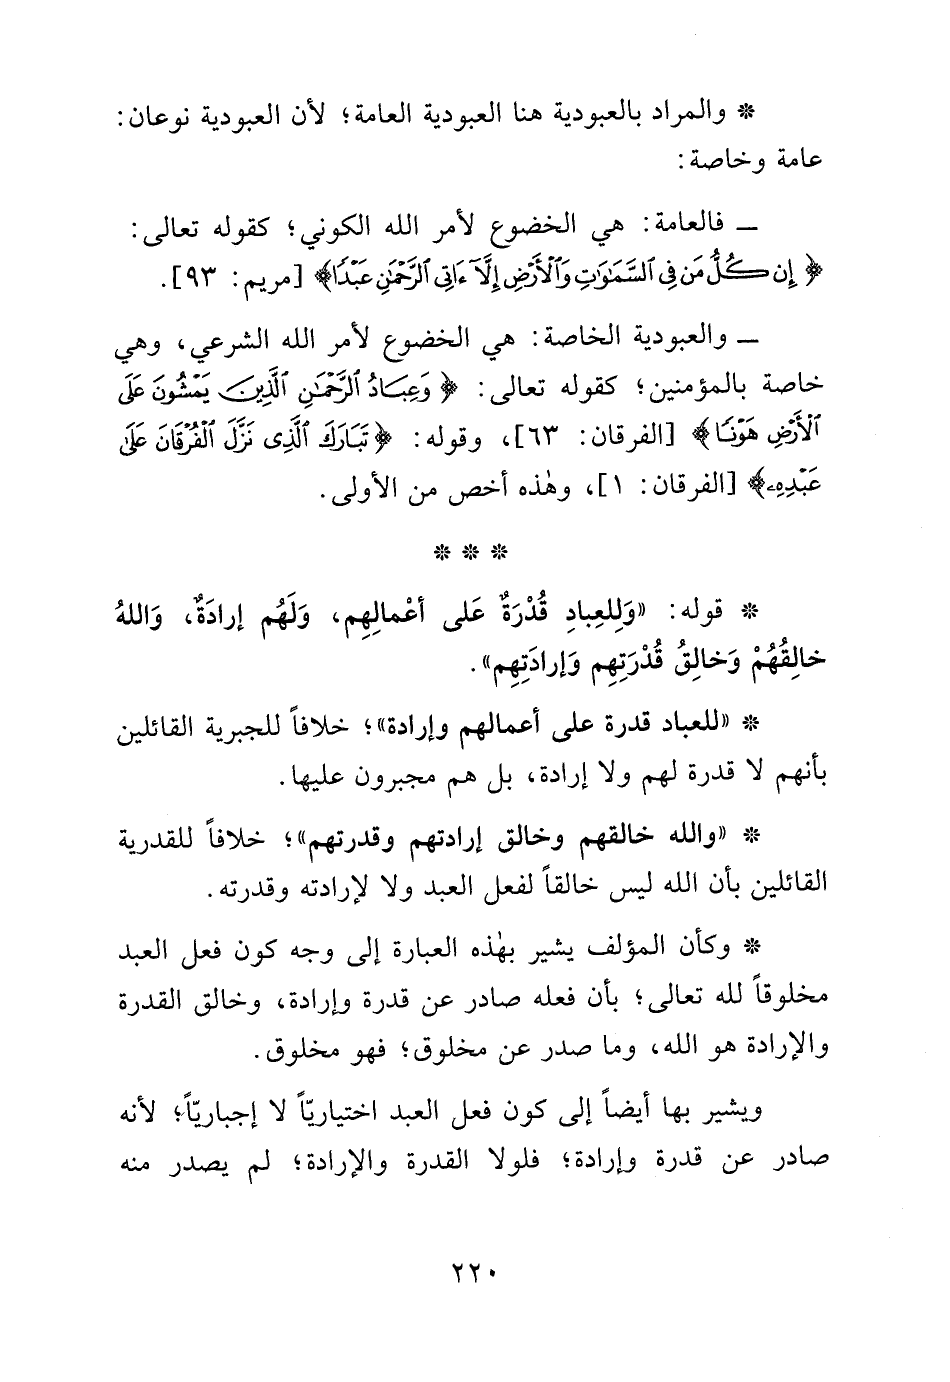 * والمراد بالعبودية هنا العبودية العامة؛ لأن العبودية نوعان:
عامة وخاصة:
ـ فالعامة: هي الخضوع لأمر الله الكوني؛ كقوله تعالى:
﴿إِن كُلُّ مَن فِى ٱلسَّمَٰوَٰتِ وَٱلْأَرْضِ إِلَّآ ءَاتِى ٱلرَّحْمَٰنِ عَبْدًا﴾ [مريم: ٩٣].
ـ والعبودية الخاصة: هي الخضوع لأمر الله الشرعي، وهي
خاصة بالمؤمنين؛ كقوله تعالى: ﴿وَعِبَادُ ٱلرَّحْمَٰنِ ٱلَّذِينَ يَمْشُونَ عَلَى
ٱلْأَرْضِ هَوْنًا﴾ [الفرقان: ٦٣]، وقوله: ﴿تَبَارَكَ ٱلَّذِى نَزَّلَ ٱلْفُرْقَانَ عَلَىٰ
عَبْدِهِۦ﴾ [الفرقان: ١]، وهٰذه أخص من الأولى.
* * *
* قوله: «وَلِلعِبادِ قُدْرَةٌ عَلى أعْمالِهِم، وَلَهُم إرادَةٌ، وَاللهُ
خالِقُهُمْ وَخالِقُ قُدْرَتِهِم وَإرادَتِهِم».
* «للعباد قدرة على أعمالهم وإرادة»؛ خلافاً للجبرية القائلين
بأنهم لا قدرة لهم ولا إرادة، بل هم مجبرون عليها.
* «والله خالقهم وخالق إرادتهم وقدرتهم»؛ خلافاً للقدرية
القائلين بأن الله ليس خالقاً لفعل العبد ولا لإرادته وقدرته.
* وكأن المؤلف يشير بهٰذه العبارة إلى وجه كون فعل العبد
مخلوقاً لله تعالى؛ بأن فعله صادر عن قدرة وإرادة، وخالق القدرة
والإرادة هو الله، وما صدر عن مخلوق؛ فهو مخلوق.
ويشير بها أيضاً إلى كون فعل العبد اختياريّاً لا إجباريّاً؛ لأنه
صادر عن قدرة وإرادة؛ فلولا القدرة والإرادة؛ لم يصدر منه
٢٢٠